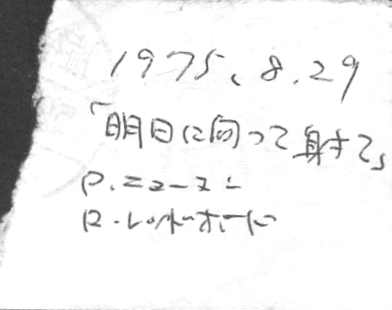 1975.8.29
「明日に向って射て」
P.ニューマン
R.レッドホード